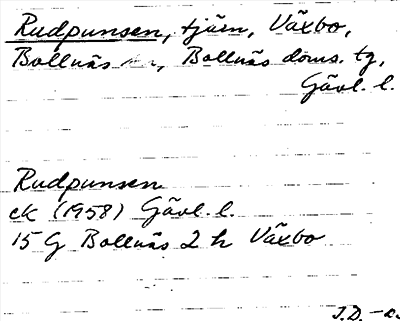 Rudpunsen, tjärn, Växbo,
Bollnäs sn, Bollnäs doms. tg,
Gävl. l.
Rudpunsen
ek (1958) Gävl. l.
15 G Bollnäs 2 h Växbo
J.D.